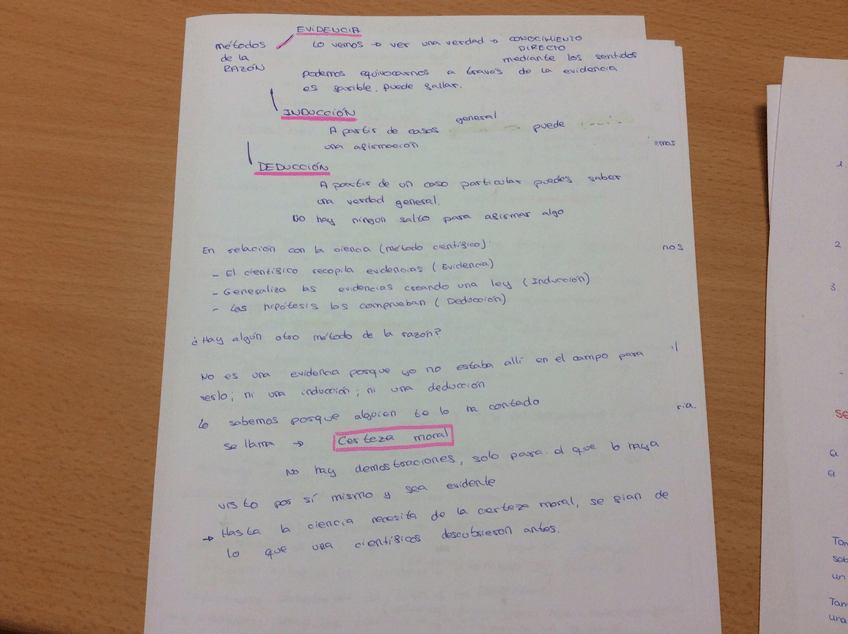 EVIDENCIA
métodos de la RAZÓN
Lo vemos → ver una verdad → CONOCIMIENTO DIRECTO
mediante los sentidos
podemos equivocarnos a través de la evidencia
es posible, puede fallar.
INDUCCIÓN
general
A partir de casos puede
una afirmación
DEDUCCIÓN
A partir de un caso particular puedes saber
una verdad general.
No hay ningún salto para afirmar algo
En relación con la ciencia (método científico)
- El científico recopila evidencias (Evidencia)
- Generaliza las evidencias creando una ley (Inducción)
- Las hipótesis las comprueban (Deducción)
¿Hay algún otro método de la razón?
No es una evidencia porque yo no estaba allí en el campo para
verlo; ni una inducción; ni una deducción
Lo sabemos porque alguien te lo ha contado
se llama → Certeza moral
No hay demostraciones, solo para el que lo haya
visto por sí mismo y sea evidente
→ Hasta la ciencia necesita de la certeza moral, se fian de
lo que una científicos descubrieron antes.
nos
ria
1.
2
3.
Tan
sob
un
Tam
una